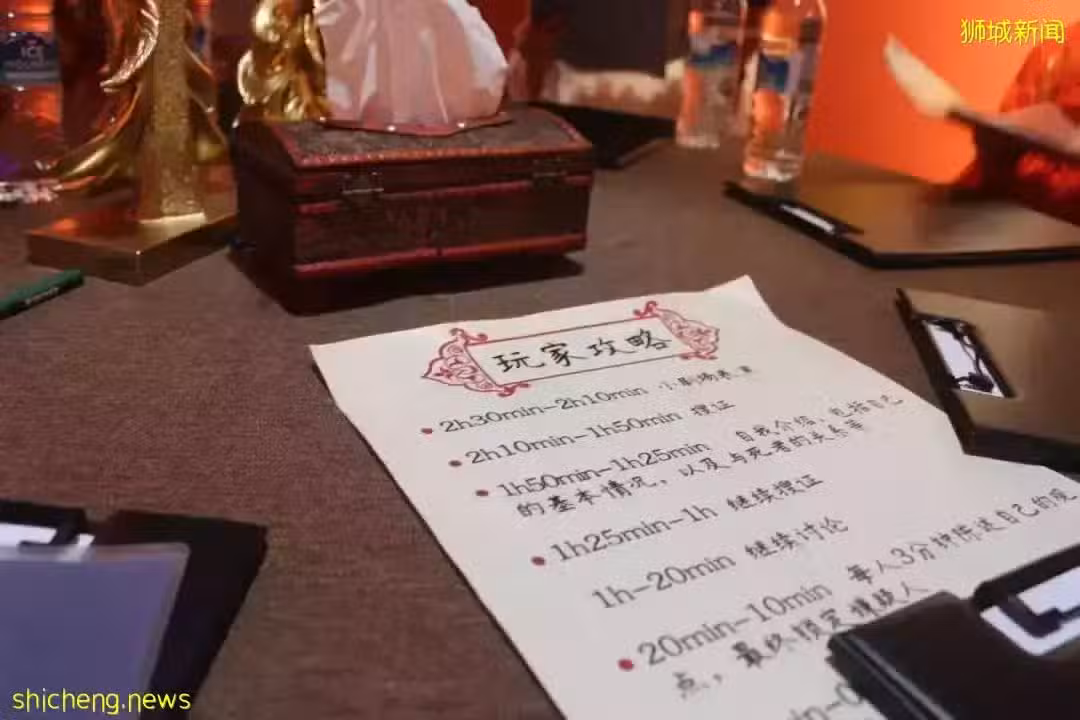 狮城新闻
玩家攻略
2h30min-2h10min 小剧场表演
2h10min-1h50min 搜证
1h50min-1h25min 自我介绍，包括自己
的基本情况，以及与死者的关系等
1h25min-1h 继续搜证
1h-20min 继续讨论
20min-10min 每人3分钟陈述自己的观
点，最终锁定嫌疑人
shicheng.news